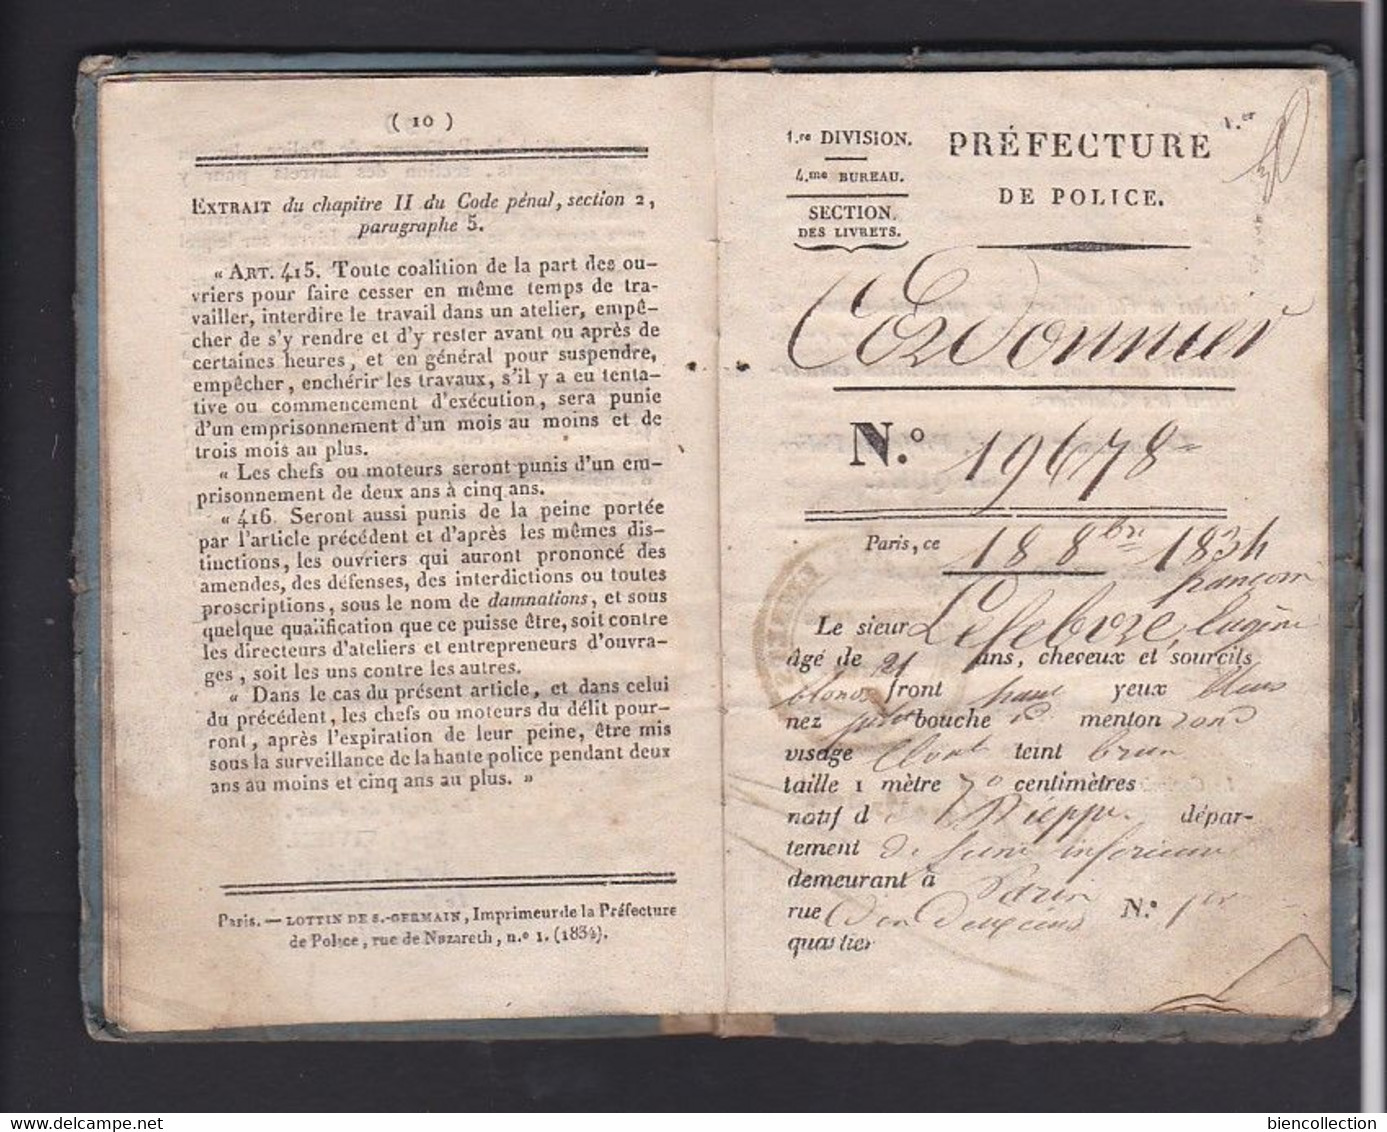 ( 10 )
EXTRAIT du chapitre II du Code pénal, section 2,
paragraphe 5.
« ART. 415. Toute coalition de la part des ou-
vriers pour faire cesser en même temps de tra-
vailler, interdire le travail dans un atelier, empê-
cher de s'y rendre et d'y rester avant ou après de
certaines heures, et en général pour suspendre,
empêcher, enchérir les travaux, s'il y a eu tenta-
tive ou commencement d'exécution, sera punie
d'un emprisonnement d'un mois au moins et de
trois mois au plus.
« Les chefs ou moteurs seront punis d'un em-
prisonnement de deux ans à cinq ans.
« 416. Seront aussi punis de la peine portée
par l'article précédent et d'après les mêmes dis-
tinctions, les ouvriers qui auront prononcé des
amendes, des défenses, des interdictions ou toutes
proscriptions, sous le nom de damnations, et sous
quelque qualification que ce puisse être, soit contre
les directeurs d'ateliers et entrepreneurs d'ouvra-
ges, soit les uns contre les autres.
« Dans le cas du présent article, et dans celui
du précédent, les chefs ou moteurs du délit pour-
ront, après l'expiration de leur peine, être mis
sous la surveillance de la haute police pendant deux
ans au moins et cinq ans au plus. »
Paris. — LOTTIN DE S.-GERMAIN, Imprimeur de la Préfecture
de Police, rue de Nazareth, n.º 1. (1834).
1.re DIVISION.
4.me BUREAU.
SECTION
DES LIVRETS.
PRÉFECTURE
DE POLICE.
1.er
Cordonnier
N.º 19678
Paris, ce 18 8bre 1834
françois
Le sieur Lefebvre, Eugène
âgé de 21 ans, cheveux et sourcils
blonds front haut yeux bleus
nez bouche id menton rond
visage teint brun
taille 1 mètre 70 centimètres
natif d Dieppe dépar-
tement de Seine inférieure
demeurant à Paris
rue N.º 1er
quartier
biencollection